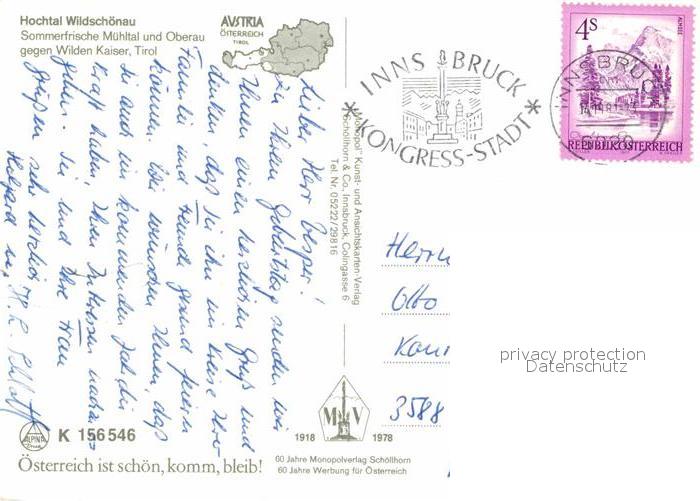 Hochtal Wildschönau
Sommerfrische Mühltal und Oberau
gegen Wilden Kaiser, Tirol
AUSTRIA
ÖSTERREICH
TIROL
INNSBRUCK
KONGRESS-STADT
4S
ALMSEE
REPUBLIK ÖSTERREICH
INNSBRUCK
Lieber Herr
zu Ihrem Geburtstag senden wir
Ihnen einen herzlichen Gruß und
denken, daß Sie ihn im Kreise Ihrer
Familie und Freunde gesund feiern
können. Wir wünschen Ihnen, daß
Sie auch im kommenden Jahr die
Kraft haben, Ihren Interessen
gehn. Sie und Ihre Frau
grüßen sehr herzlich
"Monopol" Kunst- und Ansichtskarten-Verlag
Schöllhorn & Co., Innsbruck, Colingasse 6
Tel. Nr. 05222/29816
Herrn
Otto
3588
privacy protection
Datenschutz
ALPINA
Druck
K 156546
Österreich ist schön, komm, bleib!
MV
1918 1978
60 Jahre Monopolverlag Schöllhorn
60 Jahre Werbung für Österreich